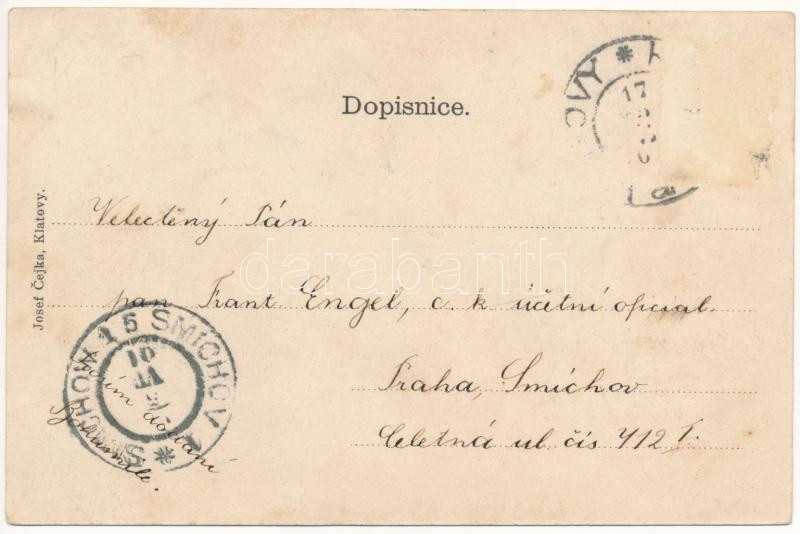 Dopisnice.
Josef Čejka, Klatovy.
Velectěný Pán
pan Frant Engel, c. k účetní oficial.
Praha, Smíchov
Celetná ul. čís 412 I.
OVY * K
17
SMÍCHOV 1 * SMICHOV 1
5
10
VI
dodání
Bohumile.
darabanth